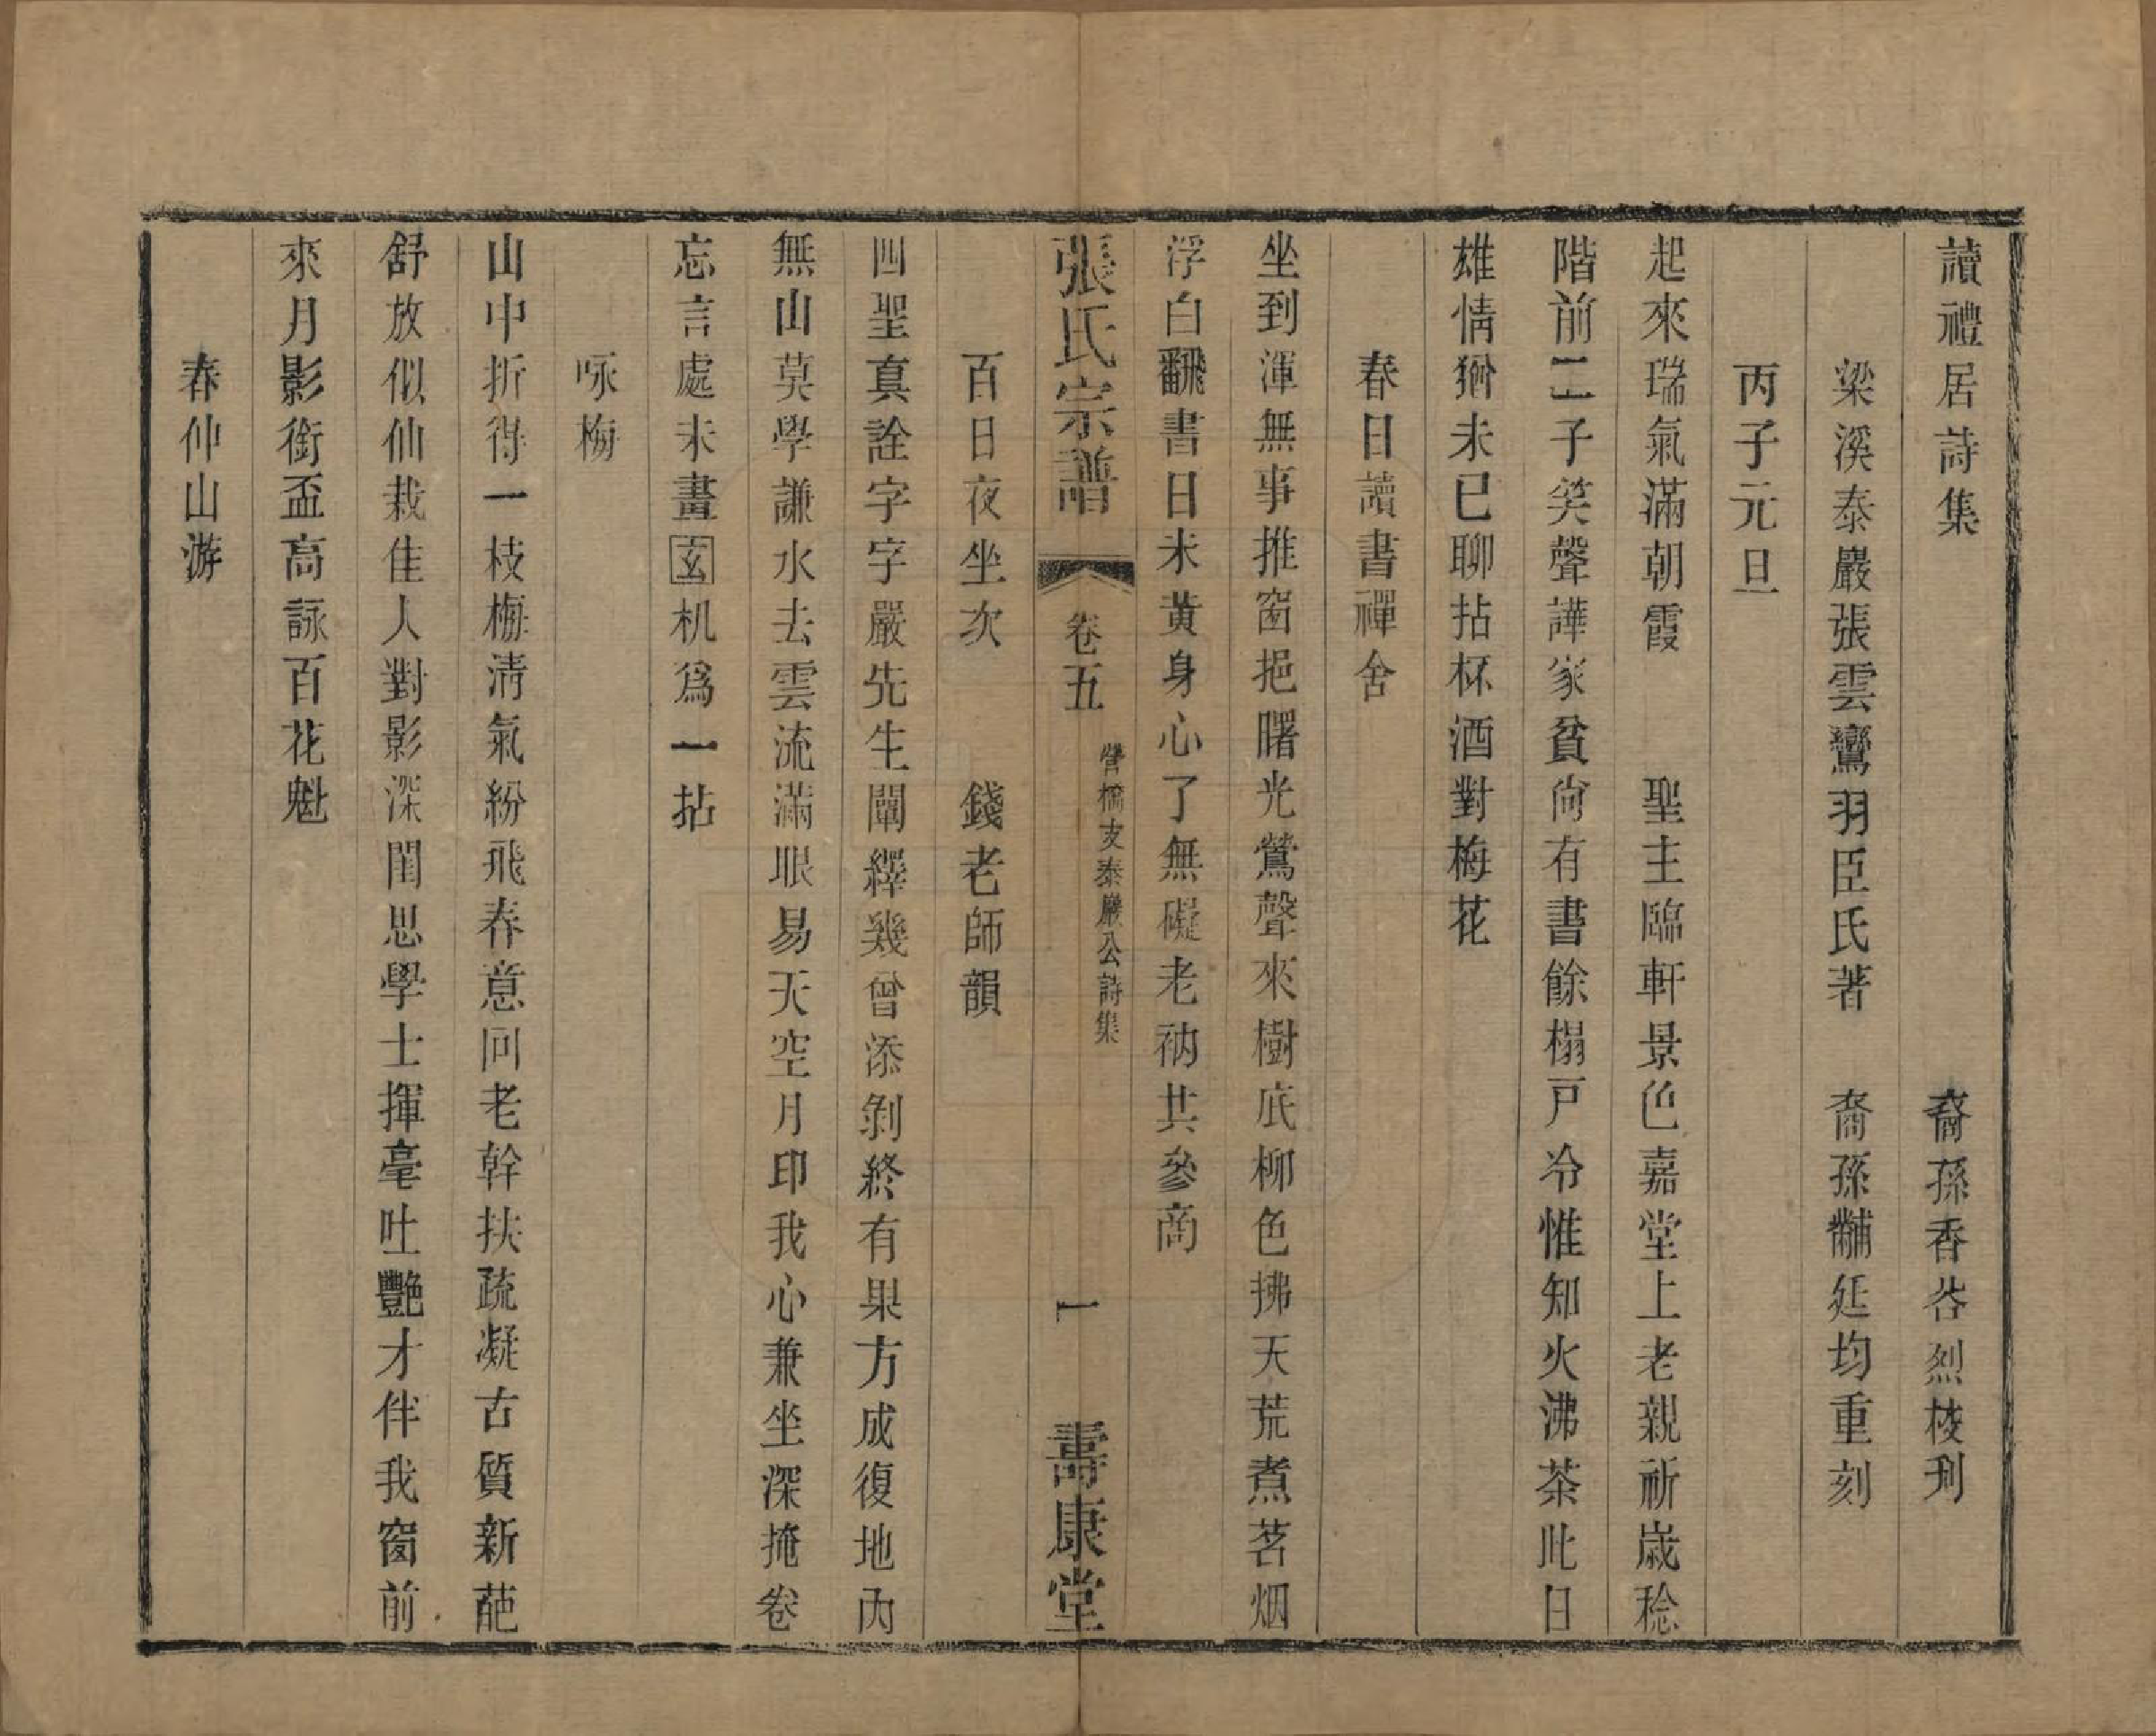 讀禮居詩集　裔孫香谷烈校刋
梁溪泰巖張雲鸞羽臣氏著　裔孫黼延均重刻
丙子元旦
起來瑞氣滿朝霞　聖主臨軒景色嘉堂上老親祈歲稔
階前二子笑聲譁家貧尙有書餘榻戸冷惟知火沸茶此日
雄情猶未已聊拈杯酒對梅花
春日讀書禪舍
坐到渾無事推窗挹曙光鶯聲來樹底柳色拂天荒煮茗烟
浮白翻書日未黃身心了無礙老衲共參商
張氏宗譜　卷五　營橋支泰巖公詩集　一　壽康堂
百日夜坐次　錢老師韻
四聖真詮字字嚴先生闡繹幾曾添剝終有果方成復地內
無山莫學謙水去雲流滿眼易天空月印我心兼坐深掩卷
忘言處未畫玄机爲一拈
咏梅
山中折得一枝梅淸氣紛飛春意回老幹扶疏凝古質新葩
舒放似仙栽佳人對影深閨思學士揮毫吐豔才伴我窗前
來月影銜盃高詠百花魁
春仲山游